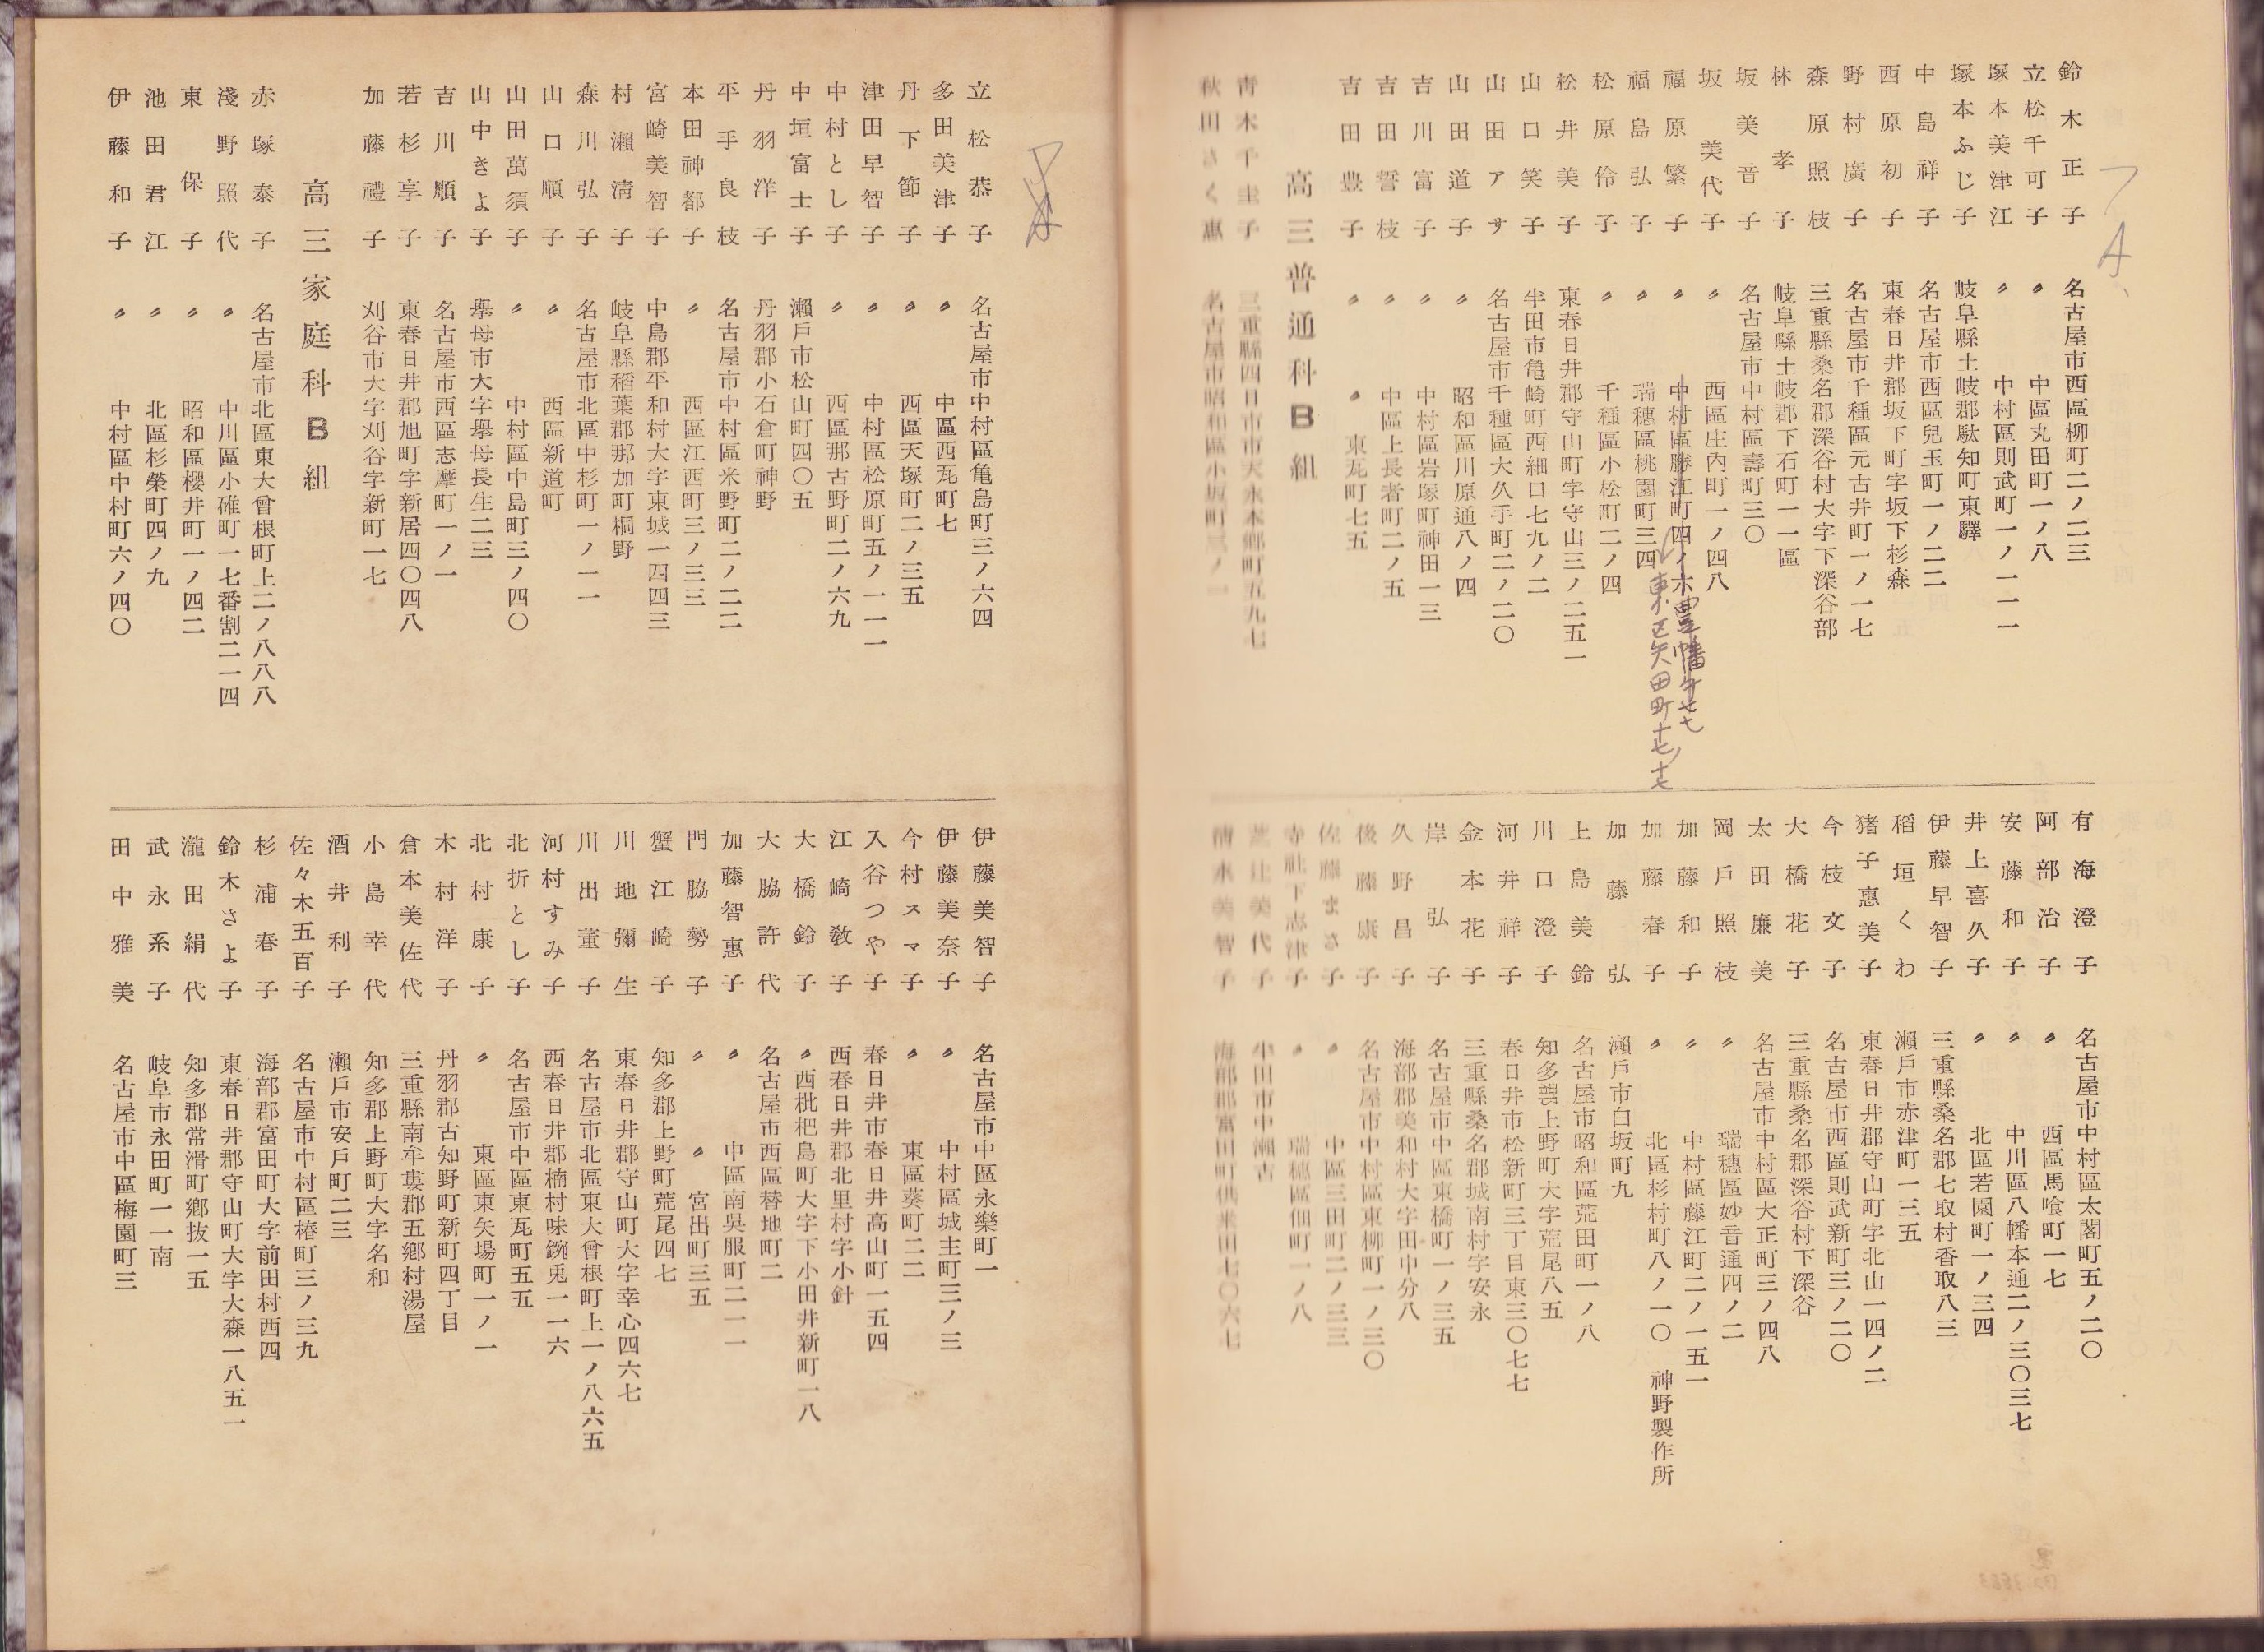 フA、
鈴木正子 名古屋市西區柳町二ノ二三
立松千可子 〃 中區丸田町一ノ八
塚本美津江 〃 中村區則武町一ノ一一一
塚本ふじ子 岐阜縣土岐郡駄知町東驛
中島祥子 名古屋市西區兒玉町一ノ二二
西原初子 東春日井郡坂下町字坂下杉森
野村廣子 名古屋市千種區元古井町一ノ一七
森原照枝 三重縣桑名郡深谷村大字下深谷部
林孝子 岐阜縣土岐郡下石町一一區
坂美音子 名古屋市中村區壽町三〇
坂美代子 〃 西區庄內町一ノ四八
福原繁子 〃 中村區勝江町四ノ六
豊幡町七七
東区矢田町十七ノ十七
福島弘子 〃 瑞穗區桃園町三四
松原伶子 〃 千種區小松町二ノ四
松井美子 東春日井郡守山町字守山三ノ二五一
山口笑子 半田市亀崎町西細口七九ノ二
山田アサ 名古屋市千種區大久手町二ノ二〇
山田道子 〃 昭和區川原通八ノ四
吉川富子 〃 中村區岩塚町神田一三
吉田誓枝 〃 中區上長者町二ノ五
吉田豊子 〃 〃 東瓦町七五
高三普通科B組
青木千圭子 三重縣四日市市天永木鄕町五九七
秋田さく惠 名古屋市昭和區小坂町三ノ一
有海澄子 名古屋市中村區太閤町五ノ二〇
阿部治子 〃 西區馬喰町一七
安藤和子 〃 中川區八幡本通二ノ三〇三七
井上喜久子 〃 北區若園町一ノ三四
伊藤早智子 三重縣桑名郡七取村香取八三
稻垣くわ 瀨戶市赤津町一三五
猪子惠美子 東春日井郡守山町字北山一四ノ二
今枝文子 名古屋市西區則武新町三ノ二〇
大橋花子 三重縣桑名郡深谷村下深谷
太田廉美 名古屋市中村區大正町三ノ四八
岡戶照枝 〃 瑞穗區妙音通四ノ二
加藤和子 〃 中村區藤江町二ノ一五一
加藤春子 〃 北區杉村町八ノ一〇 神野製作所
加藤弘 瀨戶市白坂町九
上島美鈴 名古屋市昭和區荒田町一ノ八
川口澄子 知多郡上野町大字荒尾八五
河井祥子 春日井市松新町三丁目東三〇七七
金本花子 三重縣桑名郡城南村字安永
岸弘子 名古屋市中區東橋町一ノ三五
久野昌子 海部郡美和村大字田中分八
後藤康子 名古屋市中村區東柳町一ノ三〇
佐藤まさ子 〃 中區三田町二ノ三三
寺社下志津子 〃 瑞穗區佃町一ノ八
芝辻美代子 半田市中瀨古
淸水美智子 海部郡富田町供米田七〇六七
立松恭子 名古屋市中村區亀島町三ノ六四
多田美津子 〃 中區西瓦町七
丹下節子 〃 西區天塚町二ノ三五
津田早智子 〃 中村區松原町五ノ一一一
中村とし子 〃 西區那古野町二ノ六九
中垣富士子 瀨戶市松山町四〇五
丹羽洋子 丹羽郡小石倉町神野
平手良枝 名古屋市中村區米野町二ノ二二
本田神都子 〃 西區江西町三ノ三三
宮崎美智子 中島郡平和村大字東城一四四三
村瀨淸子 岐阜縣稻葉郡那加町桐野
森川弘子 名古屋市北區中杉町一ノ一一
山口順子 〃 西區新道町
山田萬須子 〃 中村區中島町三ノ四〇
山中きよ子 擧母市大字擧母長生二三
吉川順子 名古屋市西區志摩町一ノ一
若杉享子 東春日井郡旭町字新居四〇四八
加藤禮子 刈谷市大字刈谷字新町一七
高三家庭科B組
赤塚泰子 名古屋市北區東大曾根町上二ノ八八八
淺野照代 〃 中川區小碓町一七番割二一四
東保子 〃 昭和區櫻井町一ノ四二
池田君江 〃 北區杉榮町四ノ九
伊藤和子 〃 中村區中村町六ノ四〇
伊藤美智子 名古屋市中區永樂町一
伊藤美奈子 〃 中村區城主町三ノ三
今村スマ子 〃 東區葵町二二
入谷つや子 春日井市春日井高山町一五四
江崎敎子 西春日井郡北里村字小針
大橋鈴子 〃 西枇杷島町大字下小田井新町一八
大脇許代 名古屋市西區替地町二
加藤智惠子 〃 中區南吳服町二一一
門脇勢子 〃 〃 宮出町三五
蟹江崎子 知多郡上野町荒尾四七
川地彌生 東春日井郡守山町大字幸心四六七
川出菫子 名古屋市北區東大曾根町上一ノ八六五
河村すみ子 西春日井郡楠村味鋺兎一一六
北折とし子 名古屋市中區東瓦町五五
北村康子 〃 東區東矢場町一ノ一
木村洋子 丹羽郡古知野町新町四丁目
倉本美佐代 三重縣南牟婁郡五鄕村湯屋
小島幸代 知多郡上野町大字名和
酒井利子 瀨戶市安戶町二三
佐々木五百子 名古屋市中村區椿町三ノ三九
杉浦春子 海部郡富田町大字前田村西四
鈴木さよ子 東春日井郡守山町大字大森一八五一
瀧田絹代 知多郡常滑町鄕抜一五
武永系子 岐阜市永田町一一南
田中雅美 名古屋市中區梅園町三